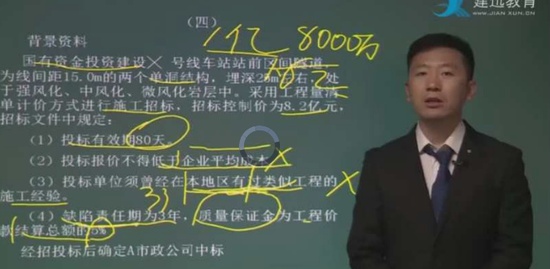 建迅教育
WWW.JIAN XUN.CN
(四)
1亿 8000万
背景资料
国有资金投资建设×号线车站站前区间隧道
为线间距15.0m的两个单洞结构,埋深25m左右,处
于强风化、中风化、微风化岩层中。采用工程量清
单计价方式进行施工招标,招标控制价为8.2亿元,
招标文件中规定:
(1)投标有效期80天。
(2)投标报价不得低于企业平均成本
(3)投标单位须曾经在本地区有过类似工程的
施工经验。
(4)缺陷责任期为3年,质量保证金为工程价
款结算总额的5%
经招投标后确定A市政公司中标